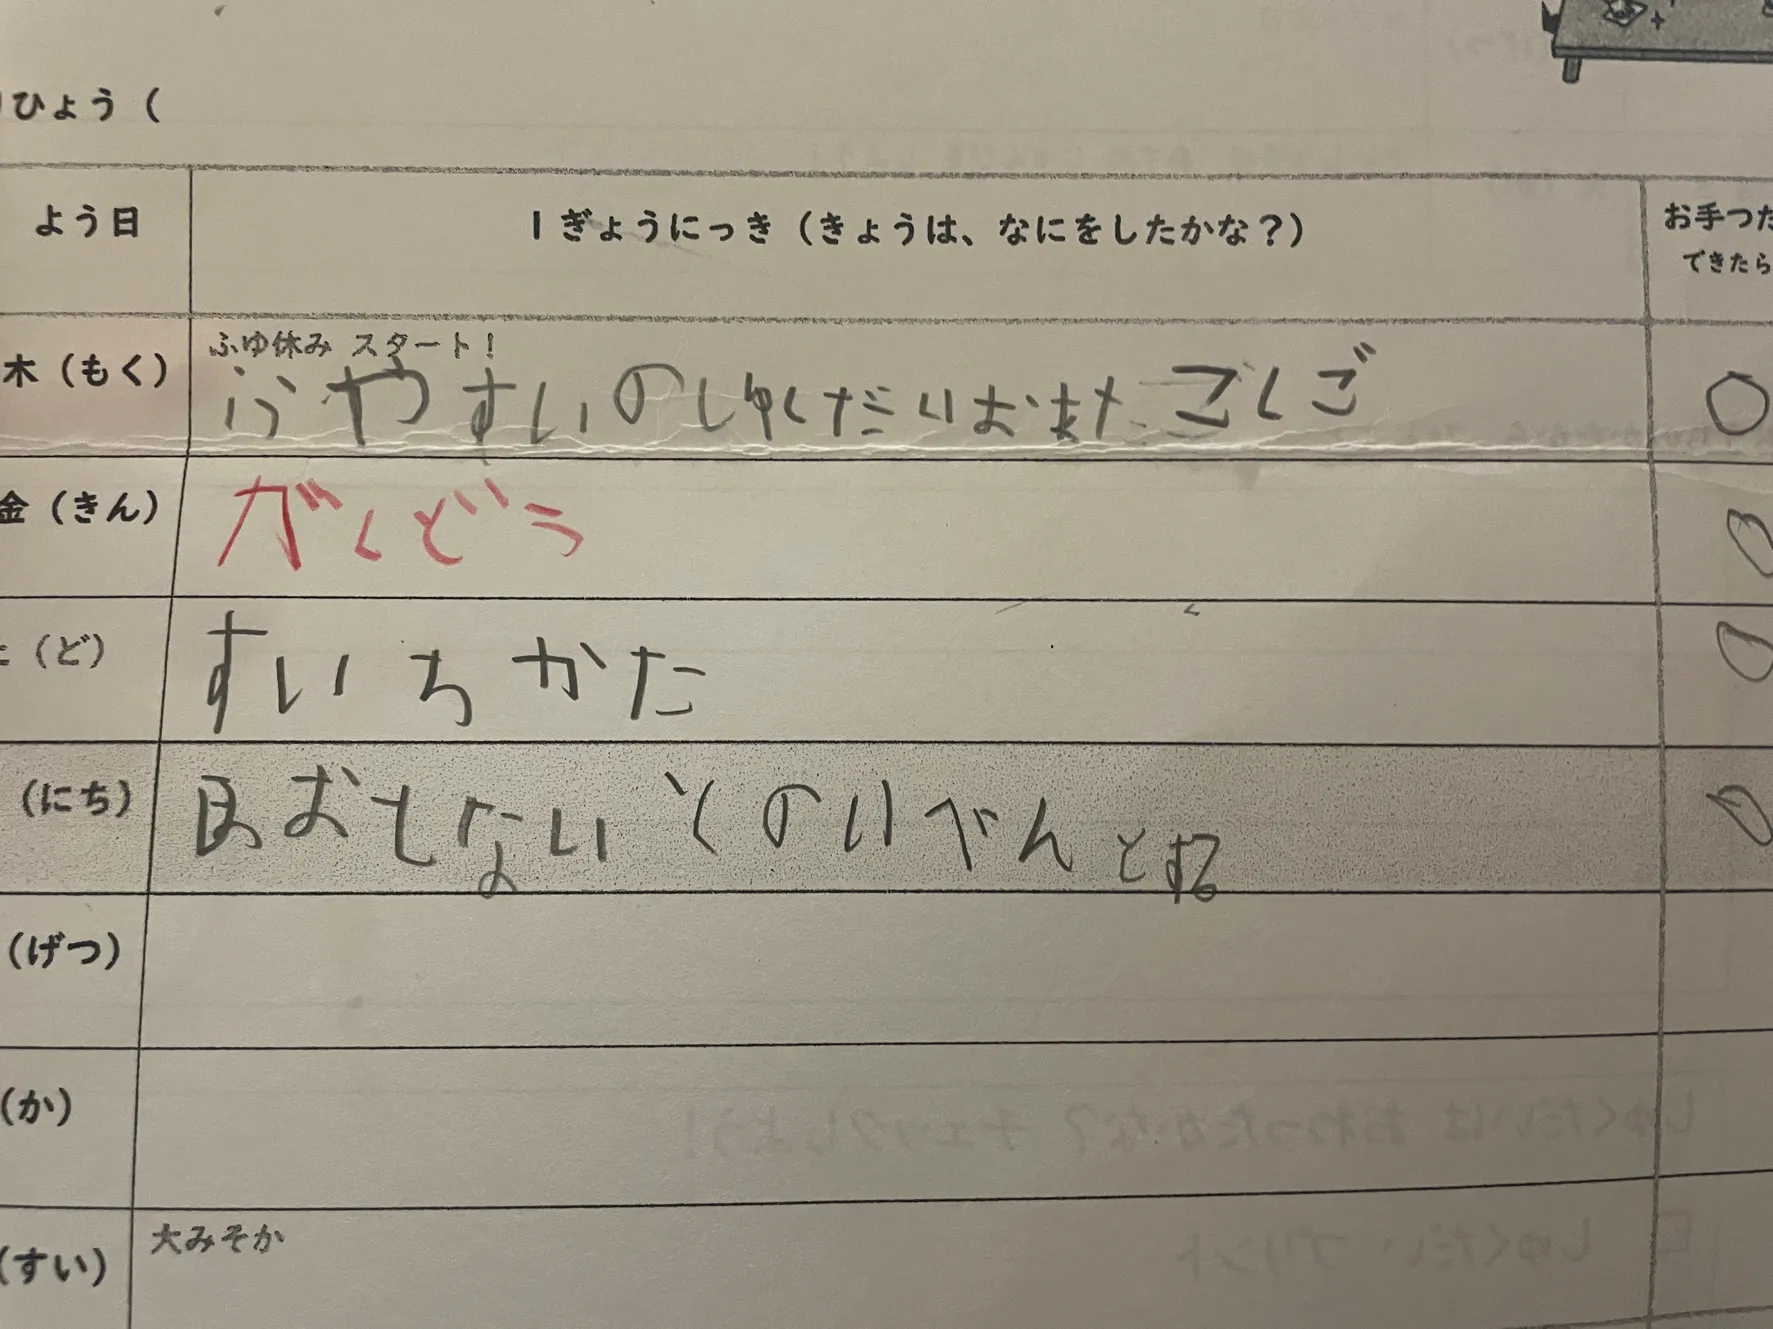 ひょう（
よう日
1ぎょうにっき（きょうは、なにをしたかな？）
お手つだ
できたら
木（もく）
ふゆ休み スタート！
ふやすいのしゅくだいおまたこくご
金（きん）
がくどう
（ど）
すいちかた
（にち）
おもない
のいべんと
（げつ）
（か）
（すい）
大みそか